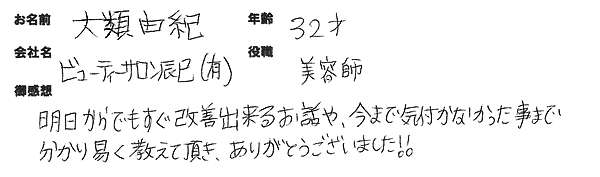 お名前 大類由紀 年齢 32才
会社名 ビューティーサロン辰巳(有) 役職 美容師
御感想
明日からでもすぐ改善出来るお話や、今まで気付かなかった事まで
分かり易く教えて頂き、ありがとうございました!!